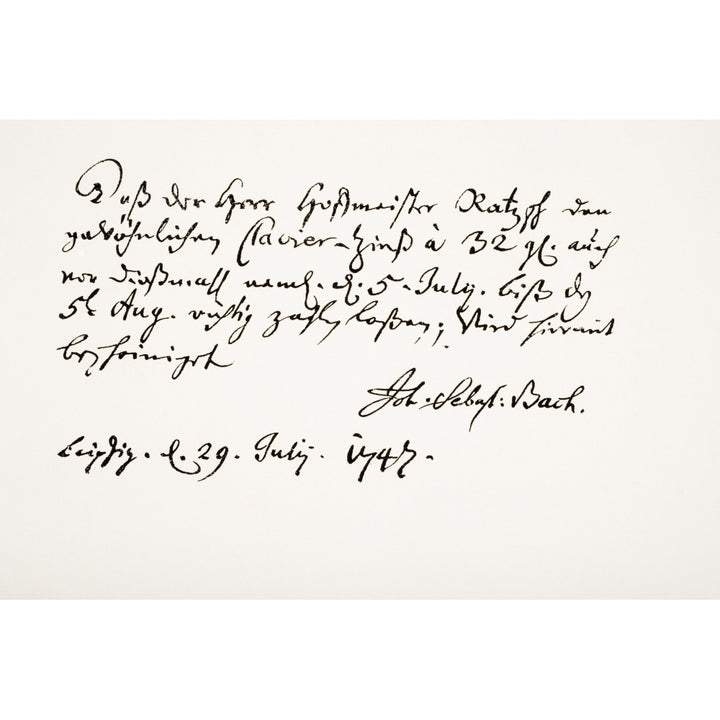 Daß der Herr Hoffmeister Ratzsch den
gewöhnlichen Clavier-Zinß à 32 gl. auch
vor dießmahl neml. d. 5. July. biß den
5t Aug. richtig zahlen laßen; Wird hiermit
bescheiniget
Joh. Sebast: Bach.
Leipzig. d. 29. July. 1747.